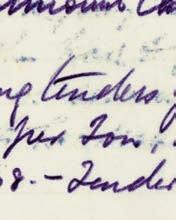 ng tenders
per Ton,
8. – Tender